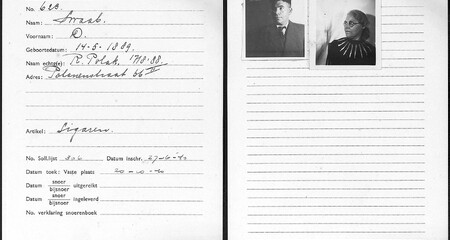 No. 623.
Naam: Swaab.
Voornaam: D.
Geboortedatum: 14-5-1889.
Naam echtg(e): R. Polak. 17/8-88.
Adres: Polanenstraat 66 II
Artikel: Sigaren.
No. Soll.lijst 306 Datum inschr. 27-6-40
Datum toek: Vaste plaats 20-10-40
Datum snoer
bijsnoer uitgereikt
Datum snoer
bijsnoer ingeleverd
No. verklaring snoerenboek